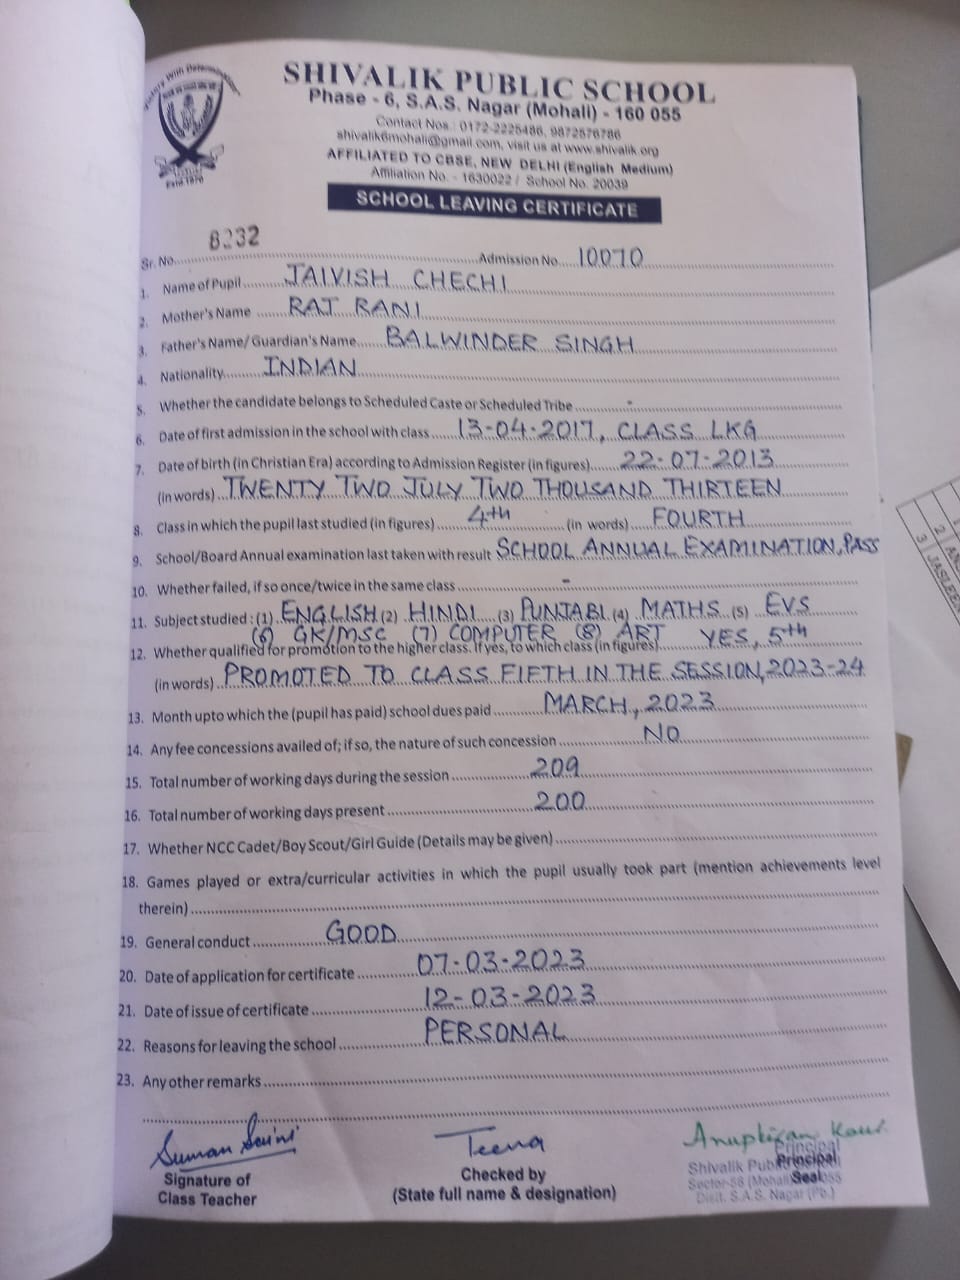 SHIVALIK PUBLIC SCHOOL
Phase - 6, S.A.S. Nagar (Mohali) - 160 055
Contact Nos.: 0172-2225486, 9872576786
shivalik6mohali@gmail.com, visit us at www.shivalik.org
AFFILIATED TO CBSE, NEW DELHI (English Medium)
Affiliation No. - 1630022 / School No. 20039
SCHOOL LEAVING CERTIFICATE
Estd 1970
Sr. No. 8232 Admission No. 10070
1. Name of Pupil JAIVISH CHECHI
2. Mother's Name RAJ RANI
3. Father's Name/ Guardian's Name BALWINDER SINGH
4. Nationality INDIAN
5. Whether the candidate belongs to Scheduled Caste or Scheduled Tribe -
6. Date of first admission in the school with class 13-04-2017, CLASS LKG
7. Date of birth (in Christian Era) according to Admission Register (in figures) 22-07-2013
(in words) TWENTY TWO JULY TWO THOUSAND THIRTEEN
8. Class in which the pupil last studied (in figures) 4th (in words) FOURTH
9. School/Board Annual examination last taken with result SCHOOL ANNUAL EXAMINATION, PASS
10. Whether failed, if so once/twice in the same class -
11. Subject studied : (1) ENGLISH (2) HINDI (3) PUNJABI (4) MATHS (5) EVS
(6) GK/MSC (7) COMPUTER (8) ART
12. Whether qualified for promotion to the higher class. If yes, to which class (in figures) YES, 5th
(in words) PROMOTED TO CLASS FIFTH IN THE SESSION, 2023-24
13. Month upto which the (pupil has paid) school dues paid MARCH, 2023
14. Any fee concessions availed of; if so, the nature of such concession NO
15. Total number of working days during the session 209
16. Total number of working days present 200
17. Whether NCC Cadet/Boy Scout/Girl Guide (Details may be given)
18. Games played or extra/curricular activities in which the pupil usually took part (mention achievements level
therein)
19. General conduct GOOD
20. Date of application for certificate 07-03-2023
21. Date of issue of certificate 12-03-2023
22. Reasons for leaving the school PERSONAL
23. Any other remarks
Suman Saini Teena Anupkiran Kaur
Signature of
Class Teacher
Checked by
(State full name & designation)
Principal
Seal
Principal
Shivalik Public
Sector-56 (Mohali)
Distt. S.A.S. Nagar (Pb.)
2
3 JASLEEN